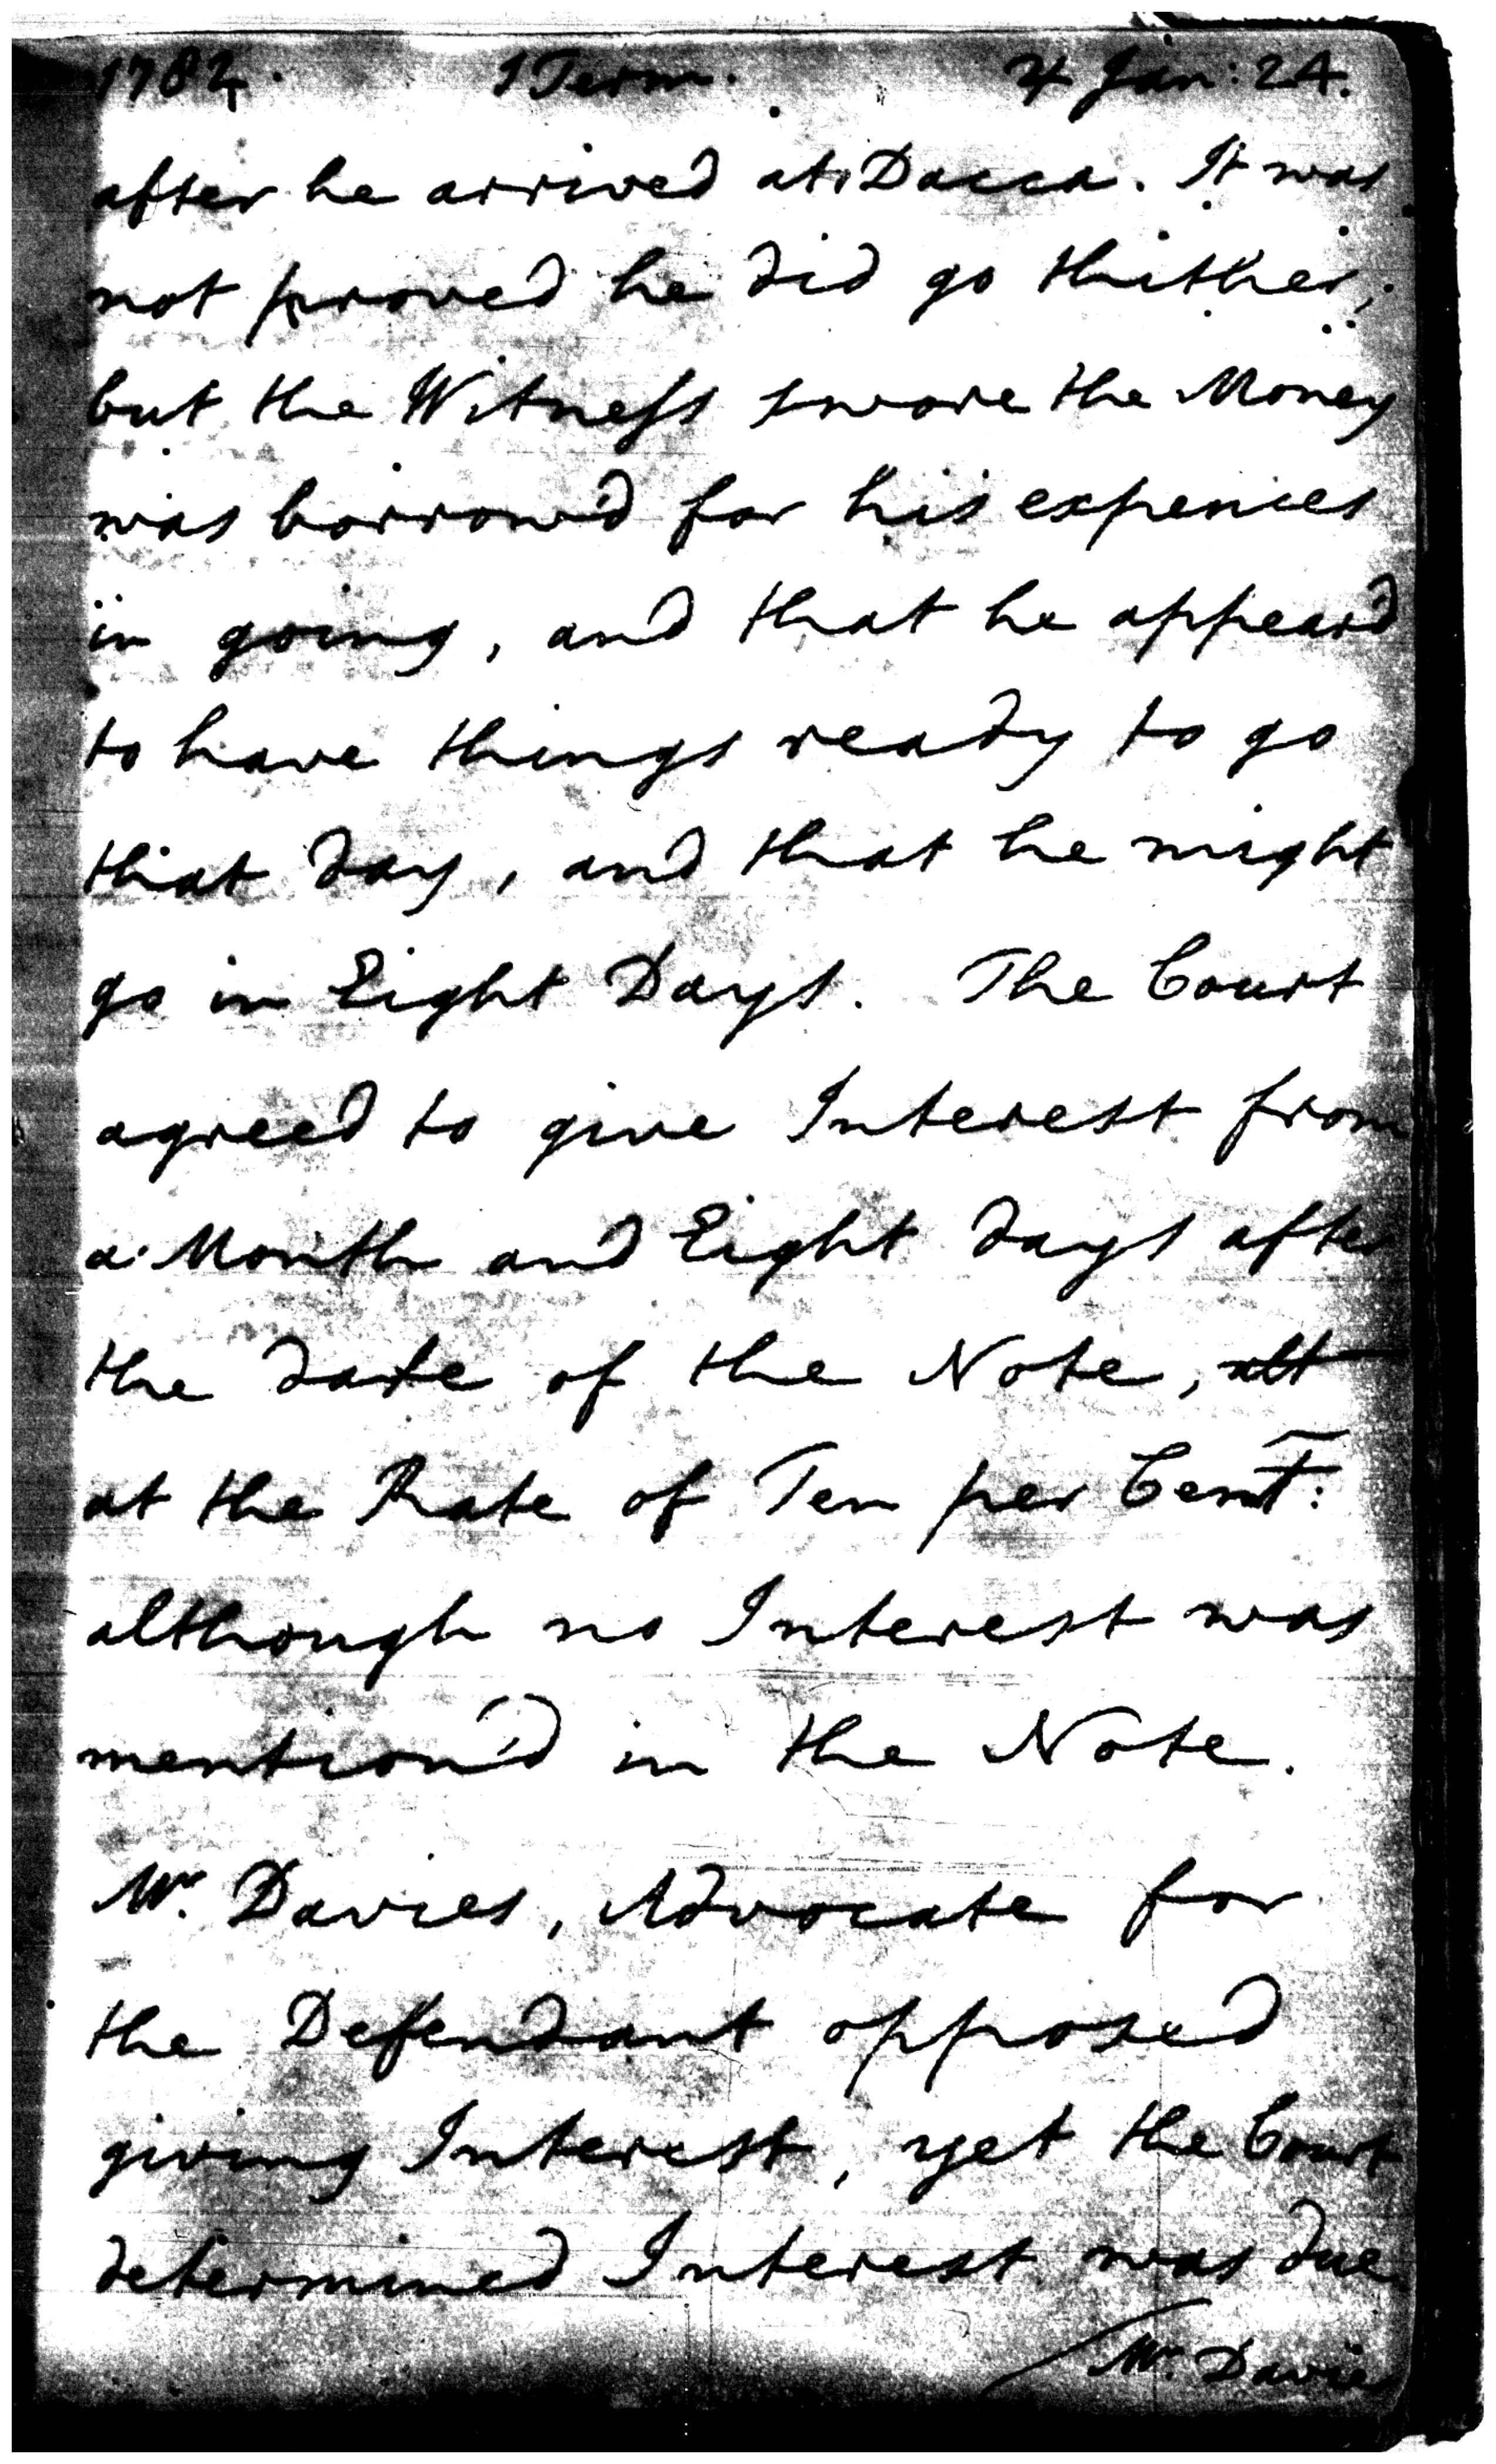 1782. 1 Term. ♃ Jan: 24.
after he arrived at Dacca. It was
not proved he did go thither;
but the Witneſs swore the Money
was borrow'd for his expences
in going, and that he appear'd
to have things ready to go
that day, and that he might
go in Eight Days. The Court
agreed to give Interest from
a Month and Eight days after
the date of the Note,
at the Rate of Ten per Cent:
although no Interest was
mention'd in the Note.
Mr. Davies, Advocate for
the Defendant opposed
giving Interest, yet the Court
determined Interest was due
Mr. Davies